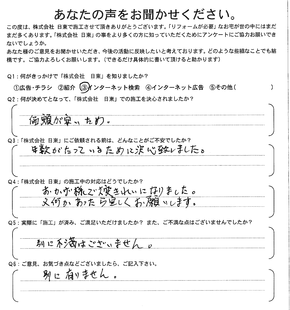 あなたの声をお聞かせください。
この度は、株式会社 日東で施工させて頂きありがとうございます。「リフォームが必要」なお宅が世の中にはまだ
まだ多くあります。「株式会社 日東」の事をより多くの方に知っていただくためにアンケートにご協力お願いできな
いでしょうか。
あなた様のご意見をお聞かせいただき、今後の活動に反映したいと考えております。どのような些細なことでも結
構です。ご協力よろしくお願いします。（できるだけ具体的に書いて頂けると助かります）
Q1：何がきっかけで「株式会社 日東」を知りましたか？
①広告・チラシ ②紹介 ③インターネット検索 ④インターネット広告 ⑤その他( )
Q2：何が決めてとなって、「株式会社 日東」での施工を決心されましたか？
価額が安いため。
Q3：「株式会社 日東」にご依頼される前は、どんなことがご不安でしたか？
年数がたっているために決心致しました。
Q4：「株式会社 日東」の施工中の対応はどうでしたか？
おかげ様で大変きれいになりました。
又何かあったら宜しくお願いします。
Q5：実際に「施工」が済み、ご満足いただけましたか？ また、ご不満な点はございませんでしたか？
別に不満はございません。
Q6：ご意見、お気づき点などございましたら、ご記入下さい。
別に有りません。